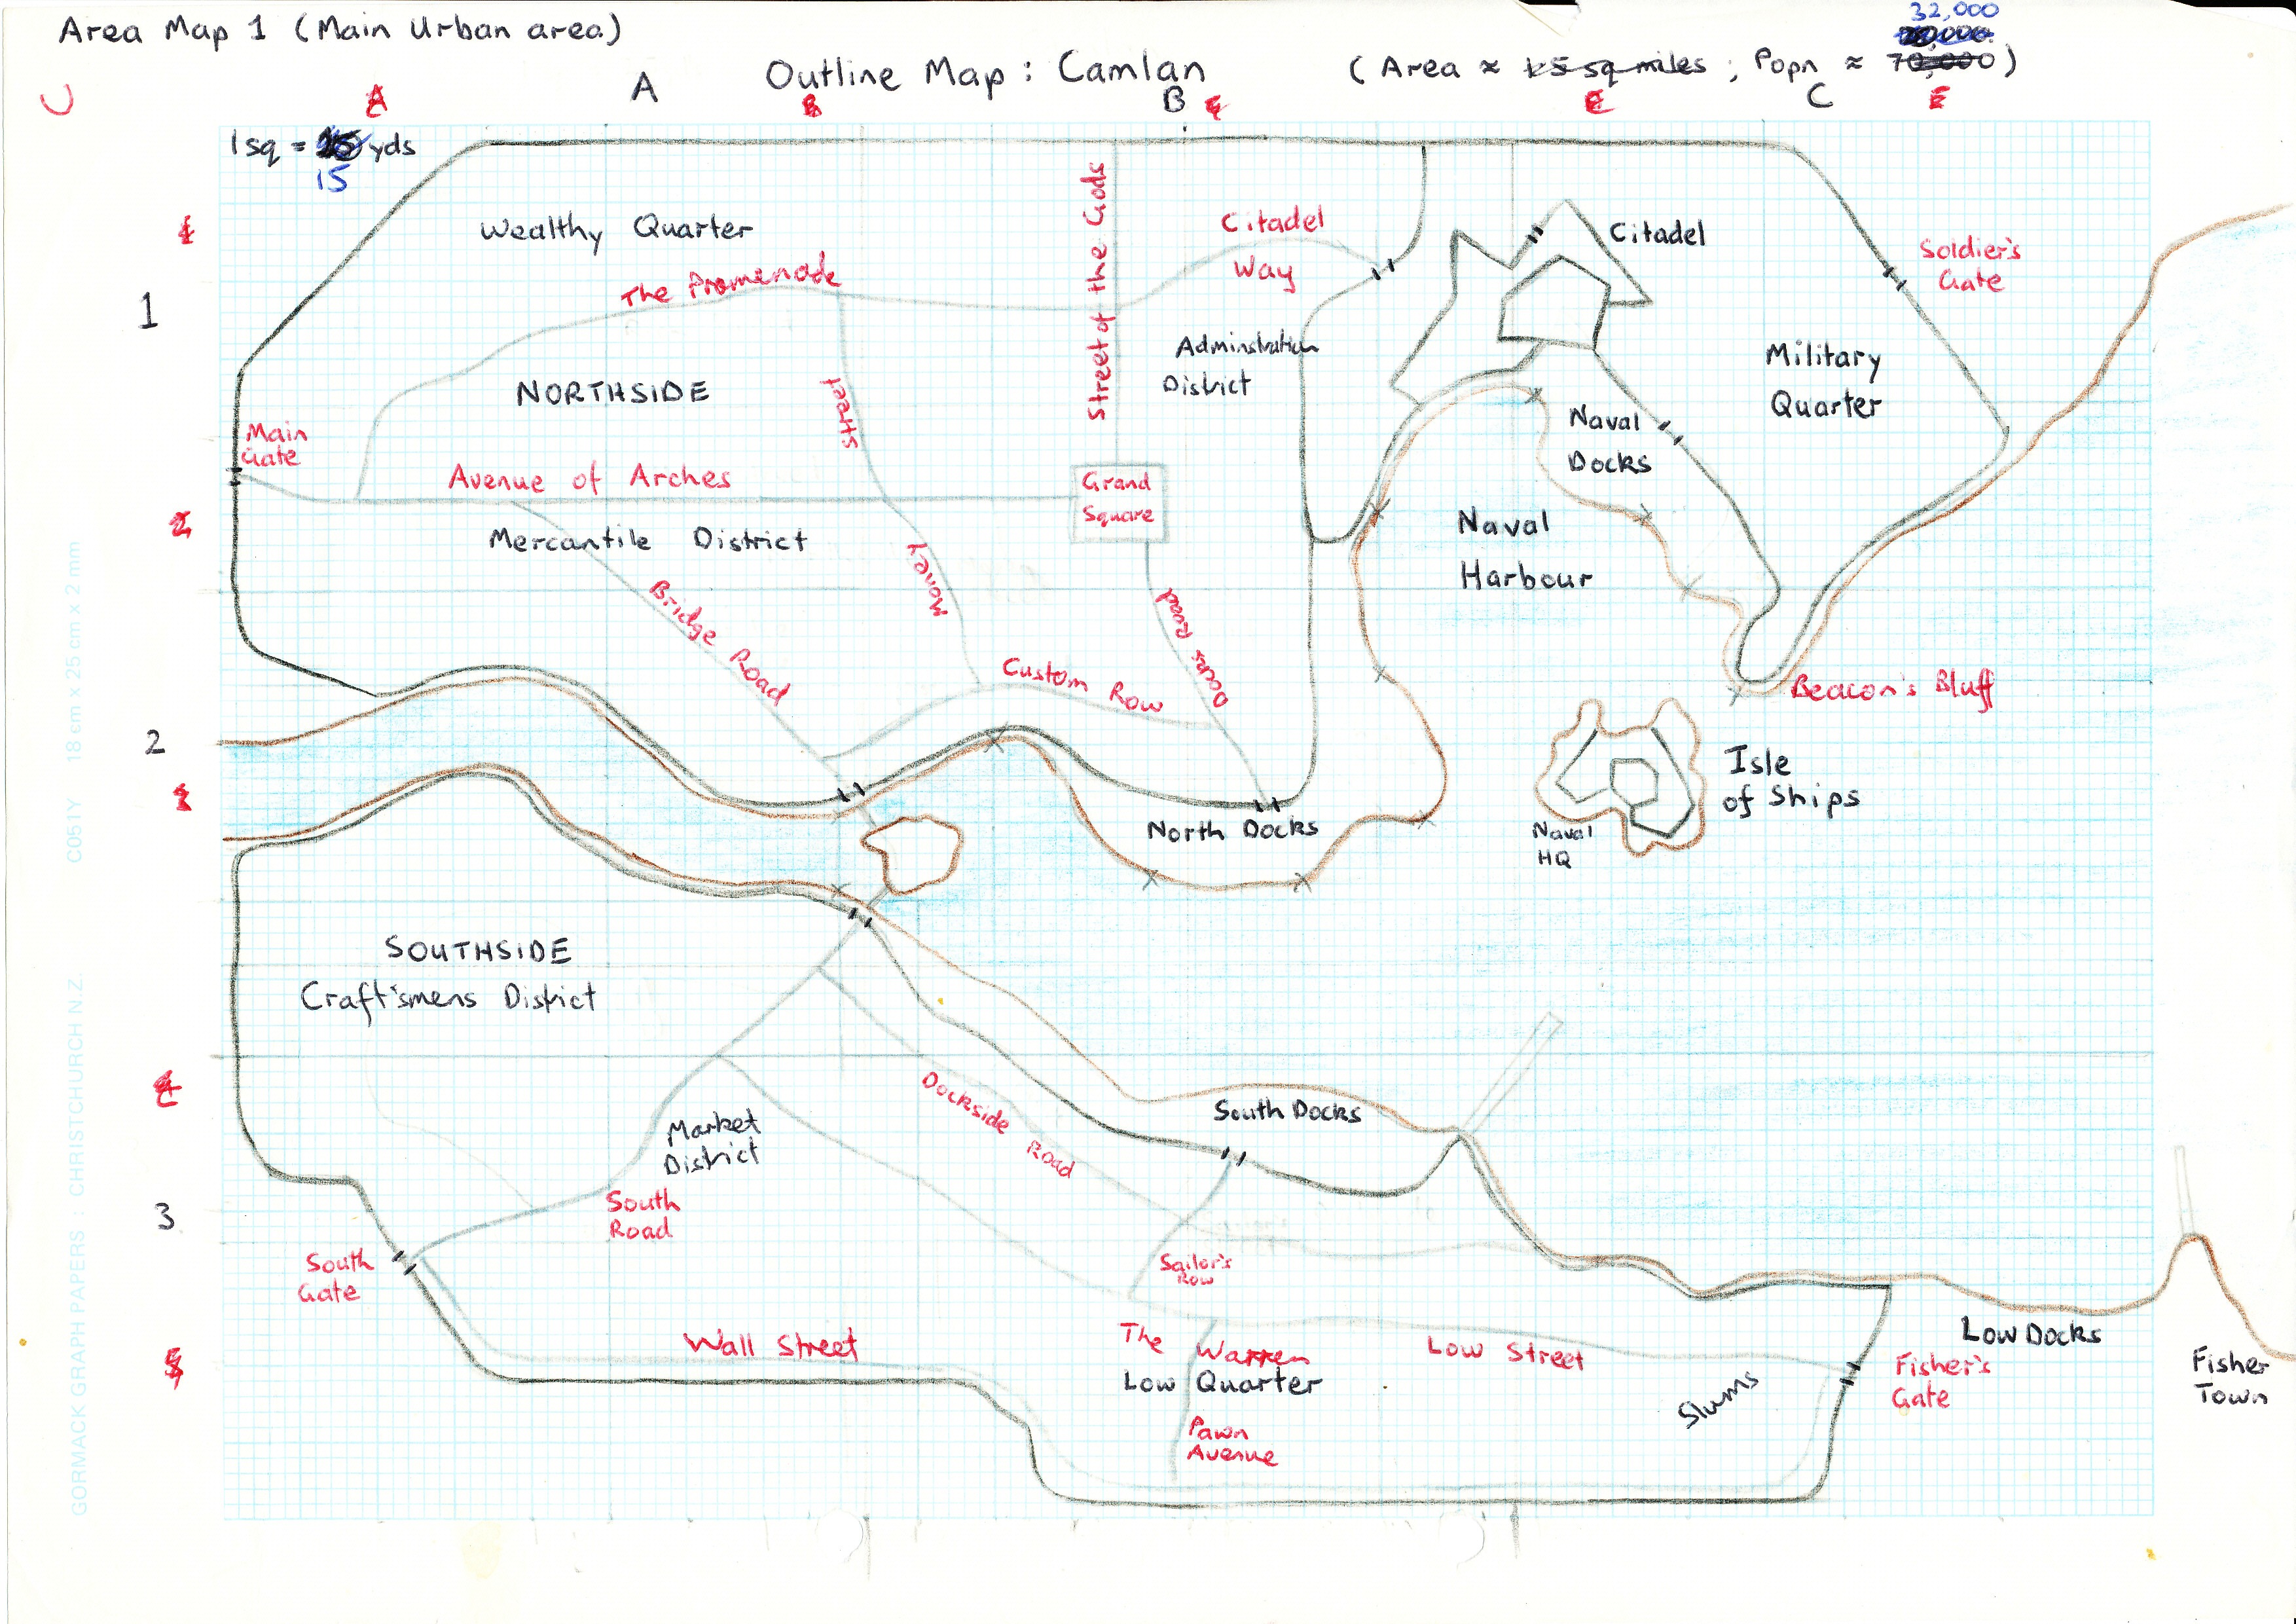 Area Map 1 (Main Urban area)
32,000
Outline Map : Camlan
(Area ≈ 1.5 sq miles ; Popn ≈ 70,000)
A B C
A B C E E
1 sq = yds
15
Wealthy Quarter
The Promenade
Street of the Gods
Citadel
Way
Citadel
Soldier's
Gate
1
1
Adminstration
District
Military
Quarter
NORTHSIDE
Street
Main
Gate
Avenue of Arches
Grand
Square
Naval
Docks
2
Mercantile District
Money
Naval
Harbour
Bridge Road
Docks Road
Custom Row
Beacon's Bluff
2
Isle
of Ships
Naval
HQ
3
North Docks
SOUTHSIDE
Craft'smens District
4
Dockside Road
South Docks
Market
District
3
South
Road
South
Gate
Sailor's
Row
Wall Street
The Warren
Low Quarter
Low Street
Slums
Low Docks
Fisher's
Gate
Fisher
Town
5
Pawn
Avenue
GORMACK GRAPH PAPERS : CHRISTCHURCH N.Z. C051Y 18 cm x 25 cm x 2 mm